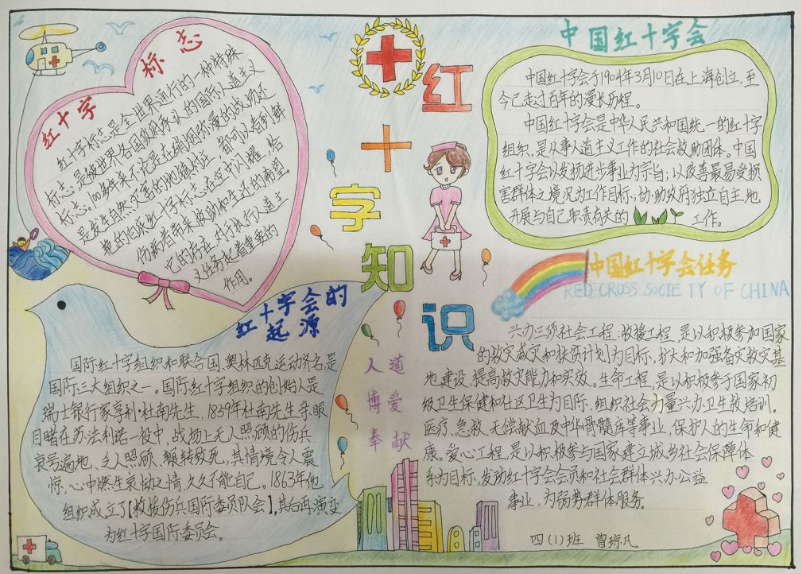 红十字标志
红十字标志是全世界通行的一种特殊
标志,是被世界各国政府承认的国际人道主义
标志,100多年来不论是在硝烟弥漫的战场还
是发生自然灾害的地震楼拉,都可以看到鲜
艳的旧旗红十字标志在空中闪耀,给
伤病者带来救助和生还的希望。
它的特征,对于执行人道主
义任务起着重要的
作用。
红十字知识
中国红十字会
中国红十字会于1904年3月10日在上海创立,至
今已走过百年的漫长历程。
中国红十字会是中华人民共和国统一的红十字
组织,是从事人道主义工作的社会救助团体。中国
红十字会以发扬进步事业为宗旨;以改善最易受损
害群体之境况为工作目标,协助政府独立自主地
开展与自己职责有关的 工作。
红十字会的
起源
国际红十字组织和联合国、奥林匹克运动齐名是
国际三大组织之一。国际红十字组织的创始人是
瑞士银行家亨利·杜南先生,1859年杜南先生亲眼
目睹在苏法利诺一役中,战场上无人照顾的伤兵
哀号遍地、乏人照顾、辗转致死,其情境令人震
惊,心中满生哀恸之情久久不能自已。1863年他
组织成立了【救援伤兵国际委员队会】,其后再演变
为红十字国际委员会。
人道
博爱
奉献
中国红十字会任务
RED CROSS SOCIETY OF CHINA
兴办三项社会工程,救援工程,是以积极参加国家
的救灾减灾和扶贫计划为目标,扩大和加强备灾救灾基
地建设,提高救灾能力和实效。生命工程,是以积极参于国家初
级卫生保健和社区卫生为目际,组织社会力量兴办卫生救培训。
医疗急救、无偿献血及中华骨髓库等事业,保护人的生命和健
康。爱心工程,是以积极参与国家建立城乡社会保障体
系为目标,发动红十字会会员和社会群体兴办公益
事业,为弱势群体服务。
四(1)班 曾婷凡